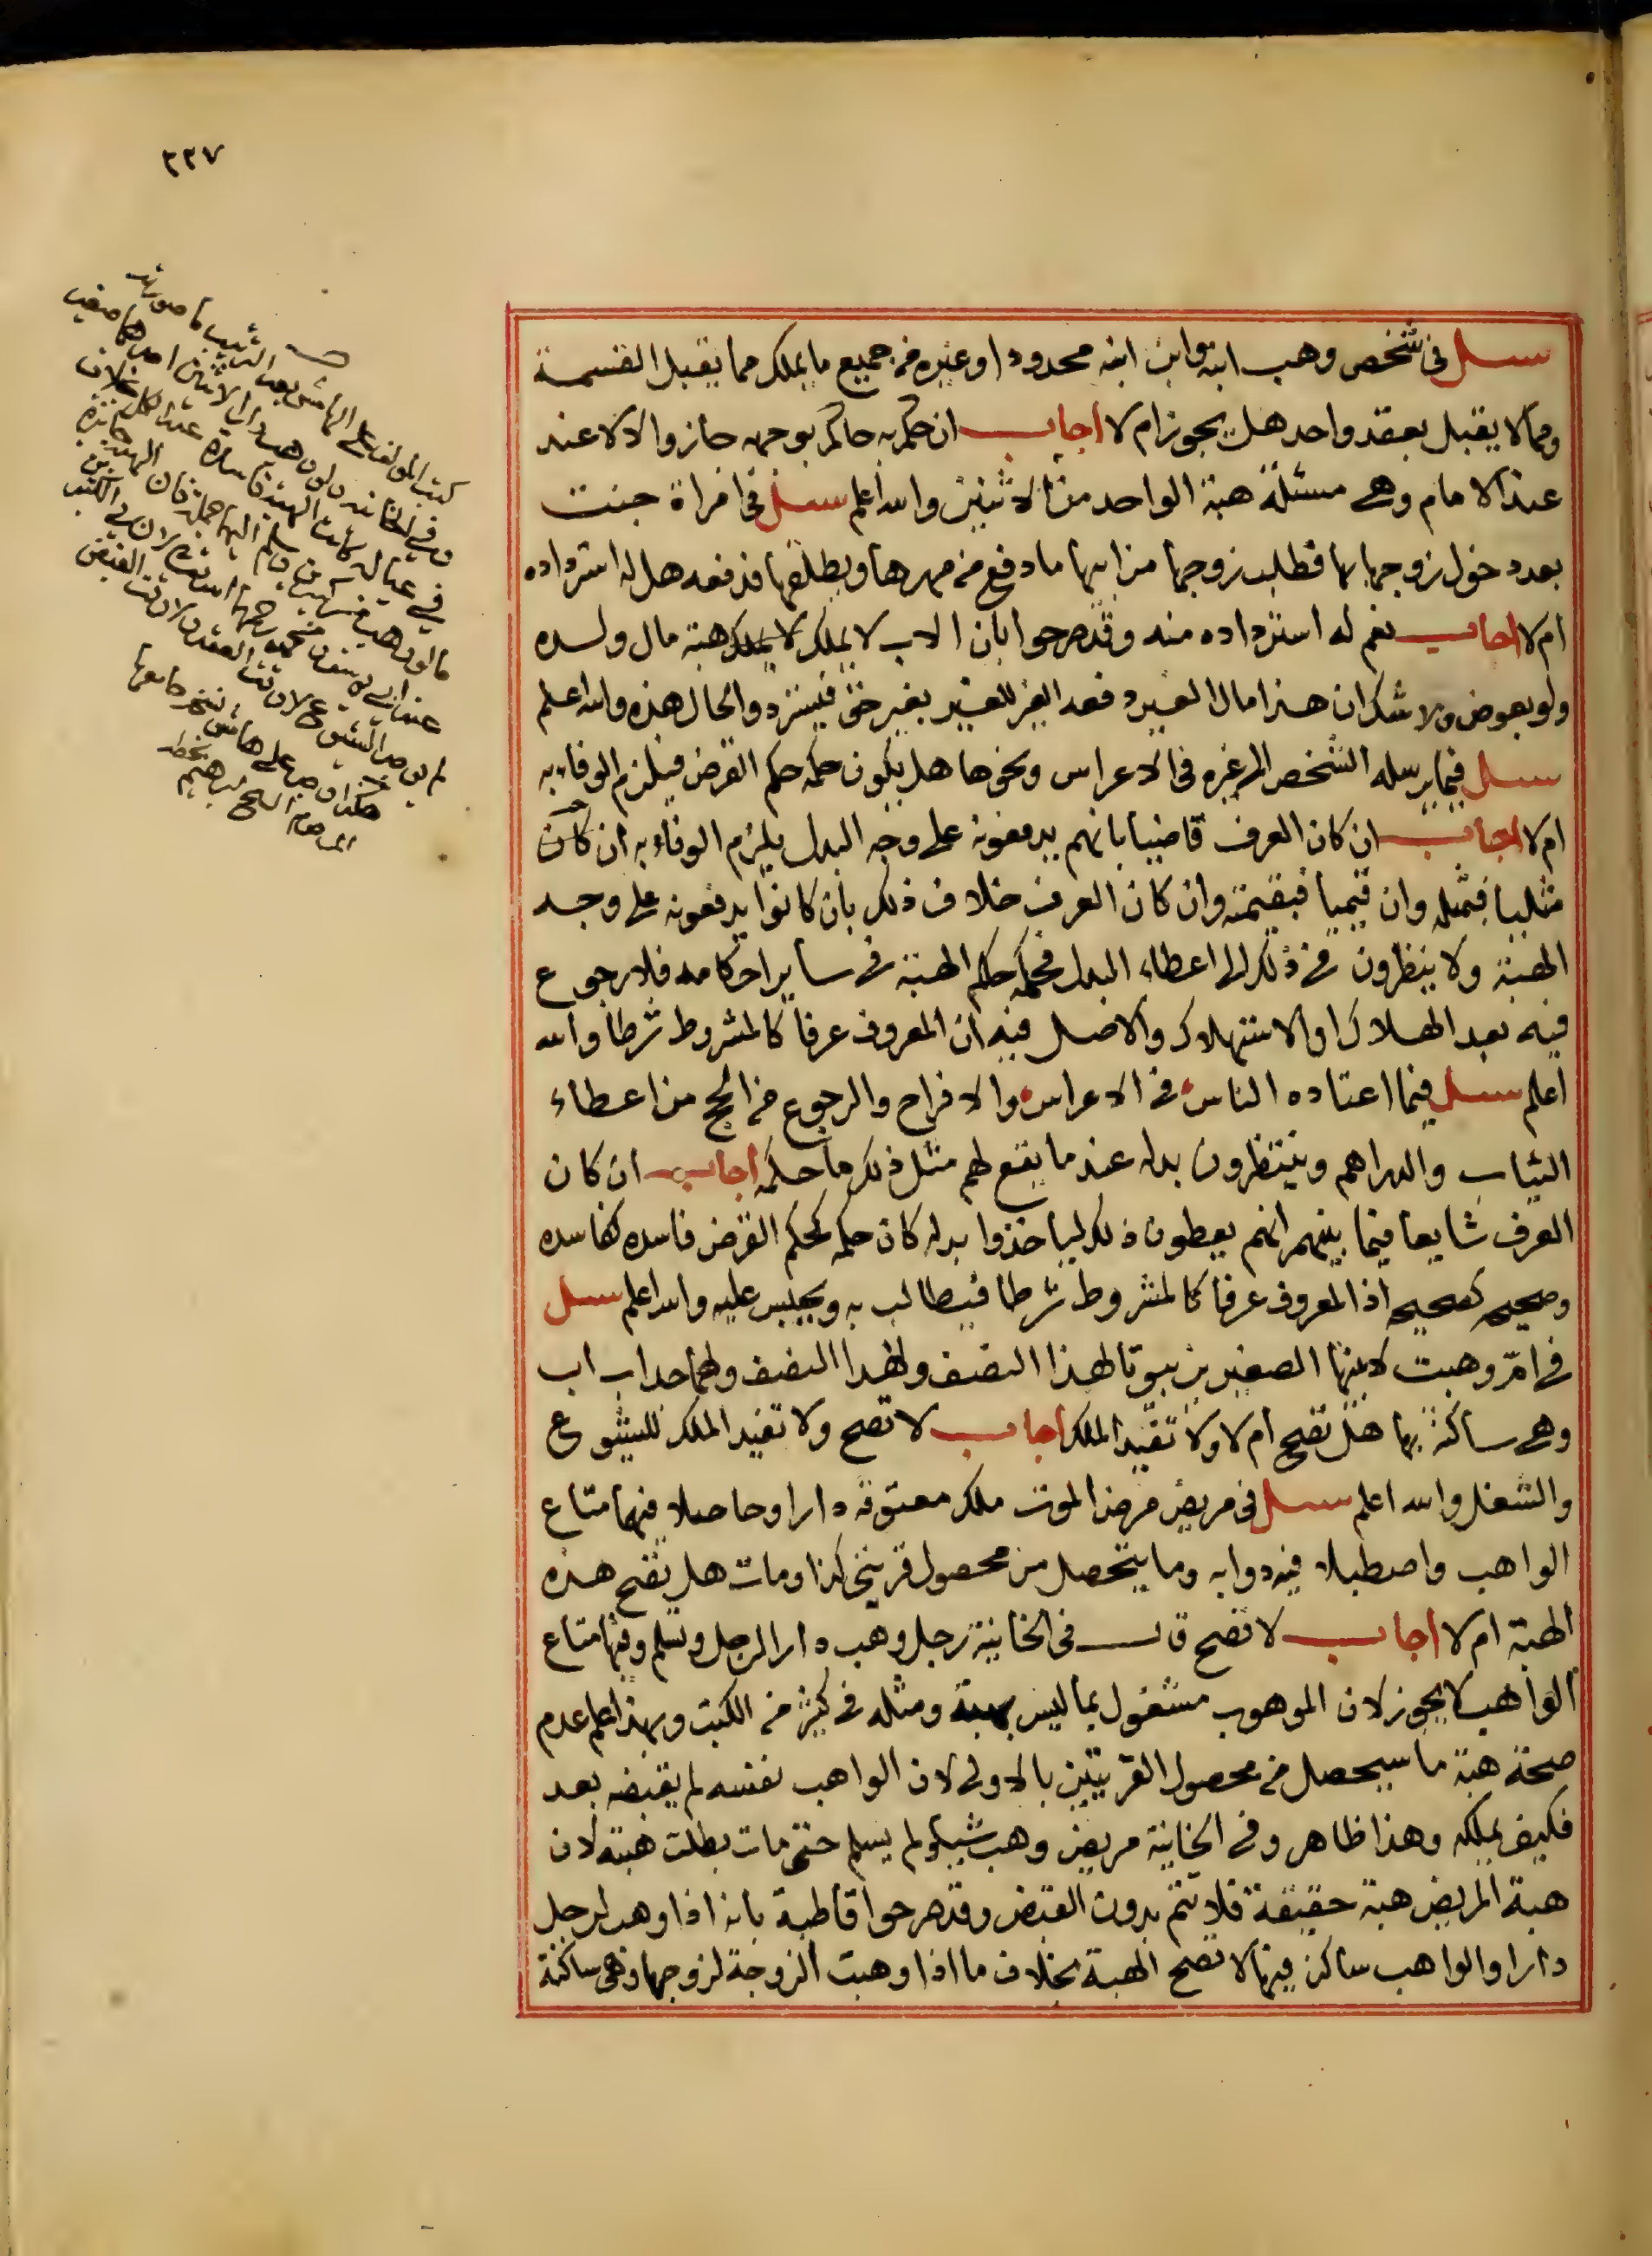 ٢٢٧
سئل في شخص وهب ابنه وابن ابنه محدودا وغيره من جميع ما يملك مما يقبل القسمة
ومما لا يقبل بعقد واحد هل يجوز ام لا اجاب ان حكم به حاكم بوجهه جاز والا لا عند
عند الامام وهي مسئلة هبة الواحد من الاثنين والله اعلم سئل في امراة جنت
بعد دخول زوجها بها فطلب زوجها من ابيها ما دفع من مهرها ويطلقها فدفعه هل له استرداده
ام لا اجاب نعم له استرداده منه وقد صرحوا بان الاب لا يملك لا يملك هبة مال ولده
ولو بعوض ولا شك ان هذا مال الغير دفعه الغير للغير بغير حق فيسترد والحال هذه والله اعلم
سئل فيما يرسله الشخص الى غيره في الاعراس ونحوها هل يكون حكمه حكم القرض فيلزم الوفاء به
ام لا اجاب ان كان العرف قاضيا بانهم يدفعونه على وجه البدل يلزم الوفاء به ان كان
مثليا فبمثله وان قيميا فبقيمته وان كان العرف خلاف ذلك بان كانوا يدفعونه على وجه
الهبة ولا ينظرون في ذلك الى اعطاء البدل فحكمه حكم الهبة في ساير احكامه فلا رجوع
فيه بعد الهلاك او الاستهلاك والاصل فيه ان المعروف عرفا كالمشروط شرطا والله
اعلم سئل فيما اعتاده الناس في الاعراس والافراح والرجوع من الحج من اعطاء
الثياب والدراهم وينتظرون بدله عندما يقع لهم مثل ذلك ما حكمه اجاب ان كان
العرف شايعا فيما بينهم انهم يعطون ذلك لياخذوا بدله كان حكمه كحكم القرض فاسده كفاسده
وصحيحه كصحيحه اذ المعروف عرفا كالمشروط شرطا فيطالب به ويحبس عليه والله اعلم سئل
في ام وهبت لابنيها الصغيرين بيوتا لهذا النصف ولهذا النصف ولهما جد اب اب
وهي ساكنة بها هل تصح ام لا ولا تفيد الملك اجاب لا تصح ولا تفيد الملك للشيوع
والشغل والله اعلم سئل في مريض مرض الموت ملك معتوقه دارا وحاصلا فيهما متاع
الواهب واصطبلا فيه دوابه وما يتحصل من محصول قريتي كذا ومات هل تصح هذه
الهبة ام لا اجاب لا تصح قال في الخانية رجل وهب دارا لرجل وسلم وفيها متاع
الواهب لا يجوز لان الموهوب مشغول بما ليس بهبة ومثله في كثير من الكتب وبهذا علم عدم
صحة هبة ما سيحصل من محصول القريتين بالاولى لان الواهب نفسه لم يقبضه بعد
فكيف يملكه وهذا ظاهر وفي الخانية مريض وهب شيئا ولم يسلم حتى مات بطلت هبته لان
هبة المريض هبة حقيقة فلا تتم بدون القبض وقد صرحوا قاطبة بانه اذا وهب لرجل
دارا والواهب ساكن فيها لا تصح الهبة بخلاف ما اذا وهبت الزوجة لزوجها وهي ساكنة
كتب المؤلف على الهامش بعد الترتيب ما صورته
وفي الخانية ولو وهب دارا لابنين احدهما صغير
في عياله كانت الهبة فاسدة عند الكل بخلاف
ما لو وهب من كبيرين وسلم اليهما جملة فان الهبة جائزة